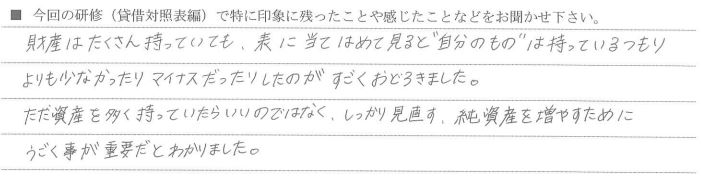 ■ 今回の研修（貸借対照表編）で特に印象に残ったことや感じたことなどをお聞かせ下さい。
財産はたくさん持っていても、表に当てはめて見ると"自分のもの"は持っているつもり
よりも少なかったりマイナスだったりしたのがすごくおどろきました。
ただ資産を多く持っていたらいいのではなく、しっかり見直す、純資産を増やすために
うごく事が重要だとわかりました。